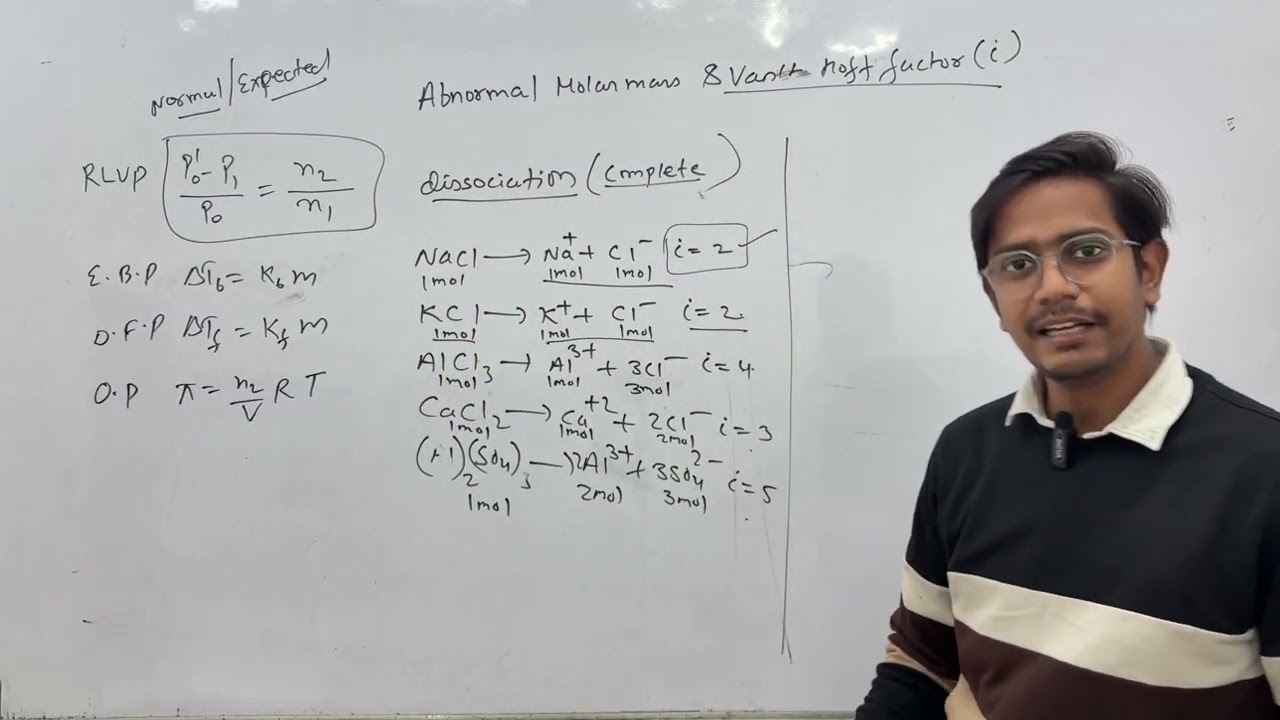 Normal/Expected
Abnormal Molarmass & Vant hoff factor (i)
RLVP P₀¹-P₁/P₀ = n₂/n₁
E.B.P ΔT_b = K_b m
D.F.P ΔT_f = K_f m
O.P π = n₂/V R T
dissociation (Complete)
NaCl → Na⁺ + Cl⁻ i = 2
1mol 1mol 1mol
KCl → K⁺ + Cl⁻ i = 2.
1mol 1mol 1mol
AlCl₃ → Al³⁺ + 3Cl⁻ i = 4.
1mol 1mol 3mol
CaCl₂ → Ca⁺² + 2Cl⁻ i = 3
1mol 1mol 2mol
(Al)₂(SO₄)₃ → 2Al³⁺ + 3SO₄²⁻ i = 5
1mol 2mol 3mol